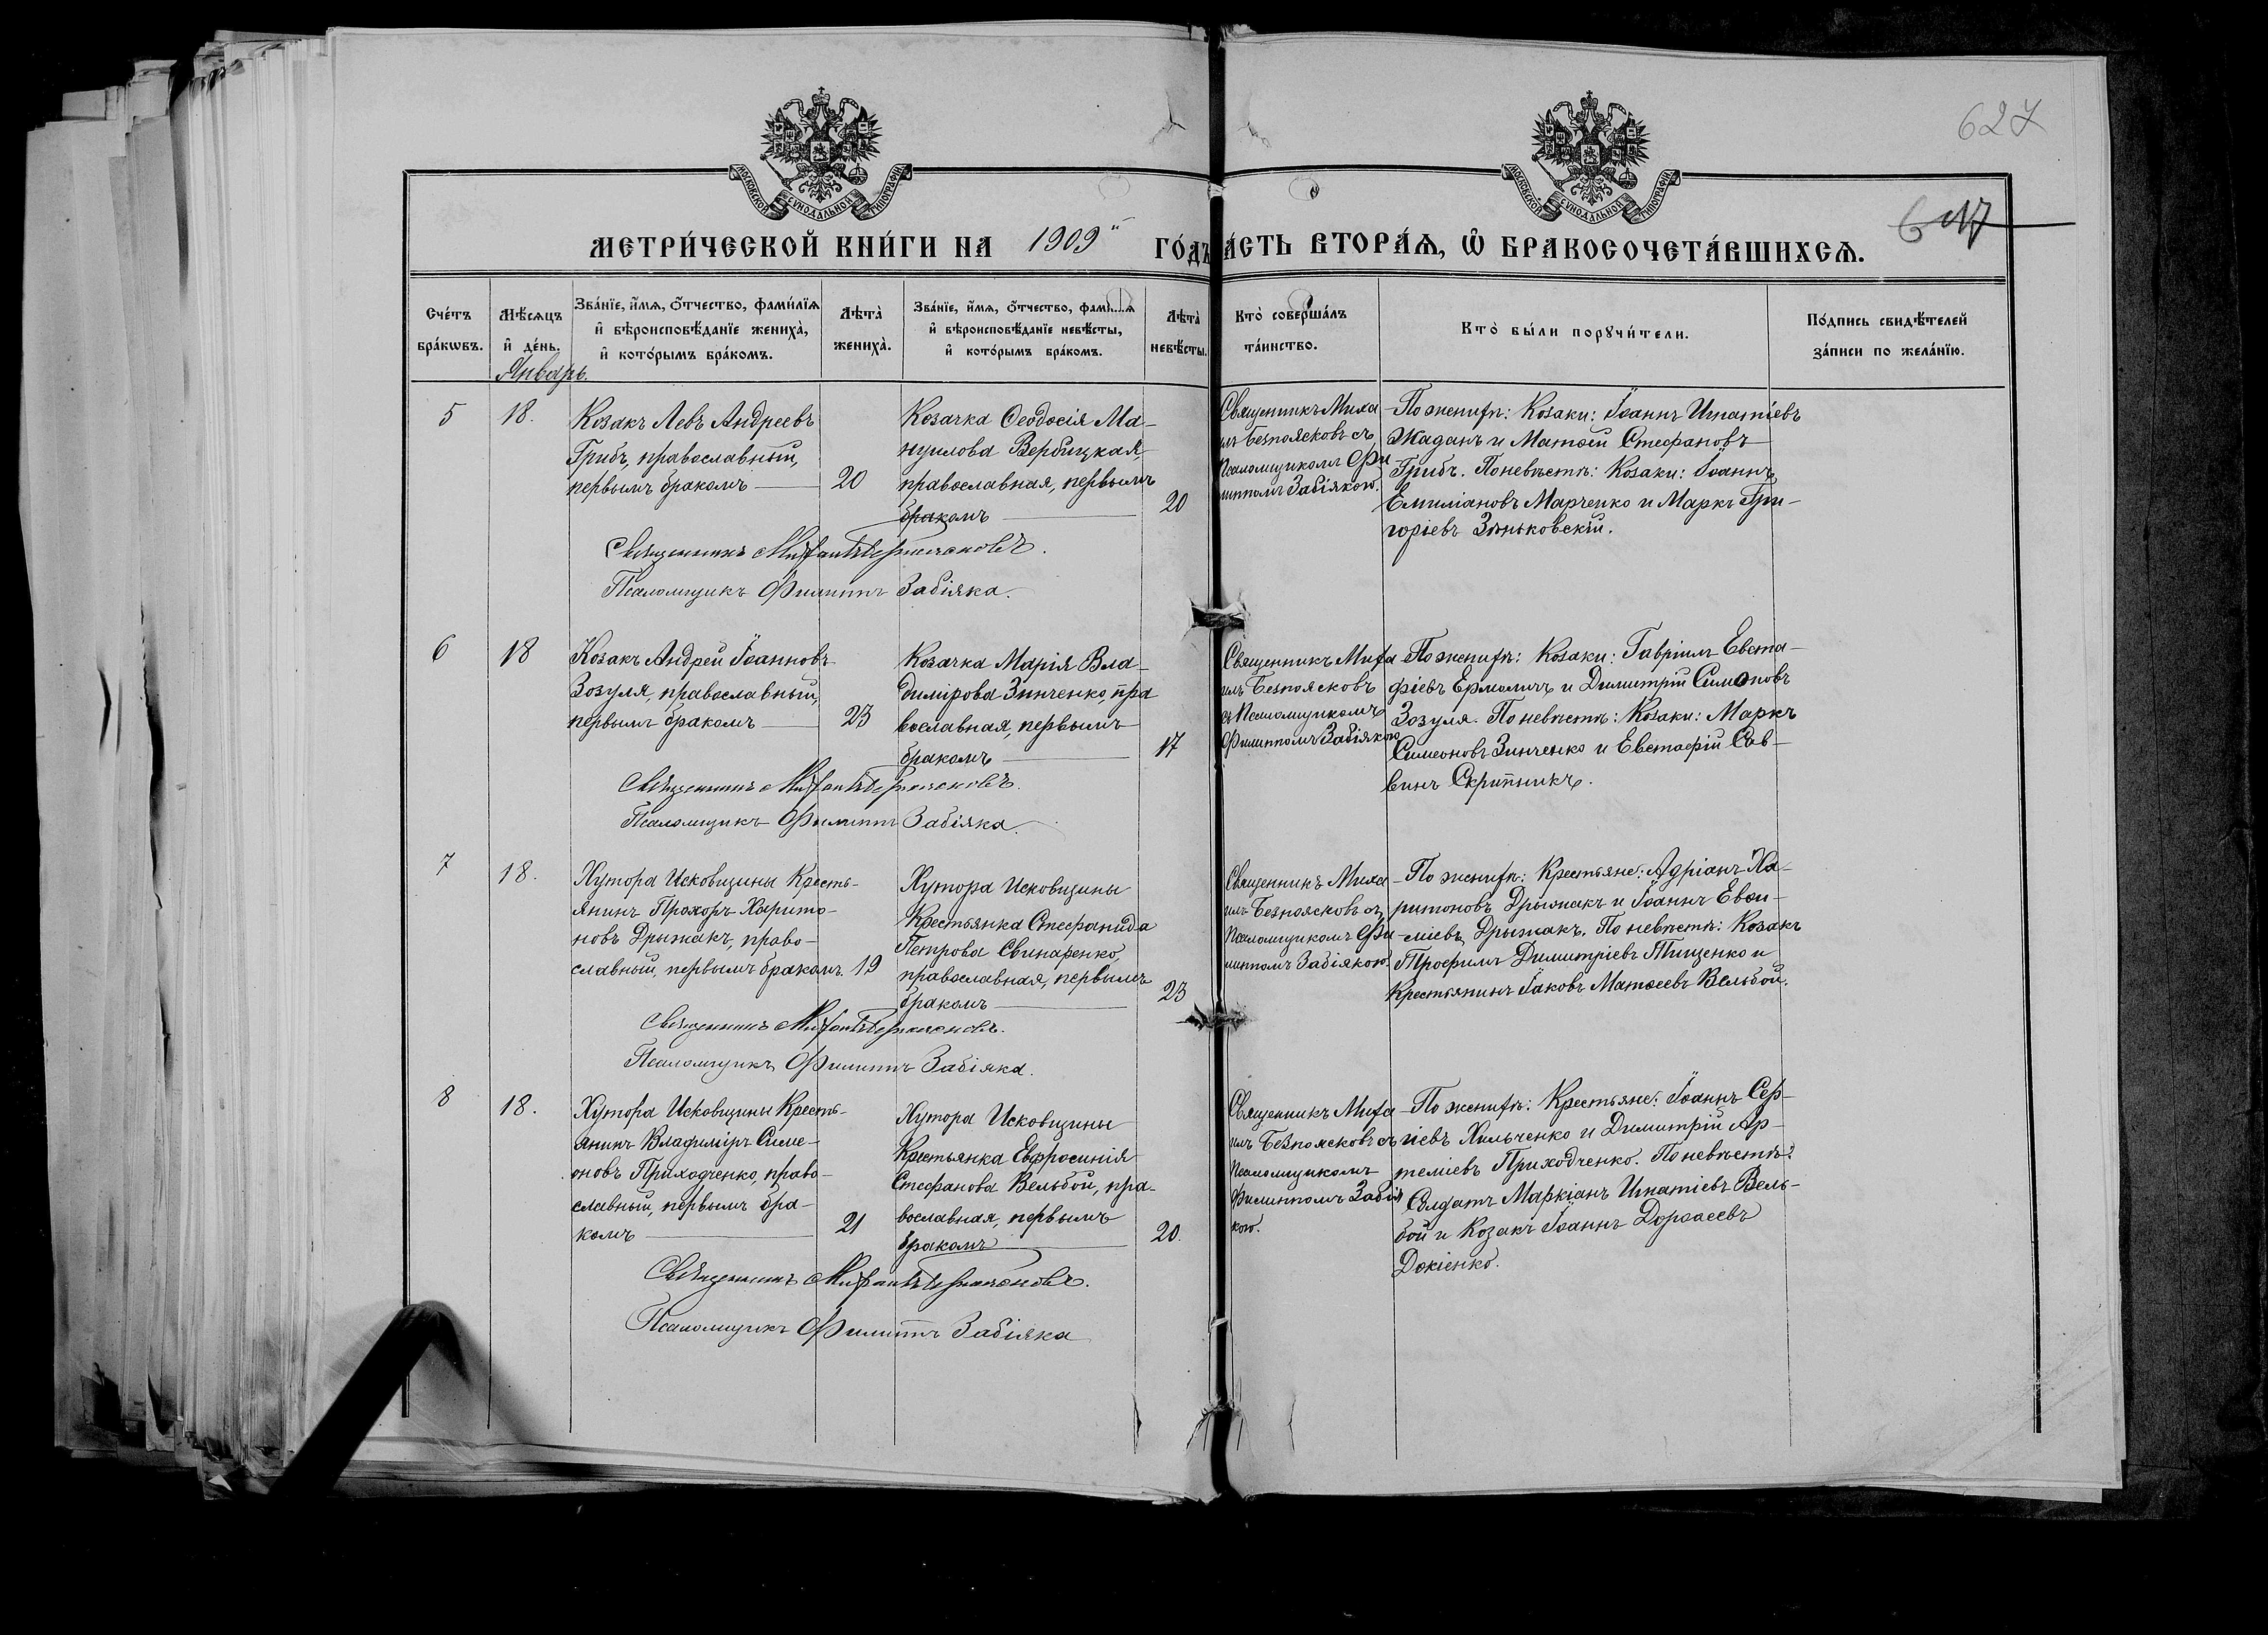 627
617
МОСКОВСКОЙ СУНОДАЛЬНОЙ ТИПОГРАФІИ
МОСКОВСКОЙ СУНОДАЛЬНОЙ ТИПОГРАФІИ
МЕТРИ́ЧЕСКОЙ КНИ́ГИ НА 1909 ГО́ДЪ
А́СТЬ ВТОРА́Ѧ, Ѡ҆ БРАКОСОЧЕТА́ВШИХСѦ.
Сче́тъ
бра́кѡвъ.
Мѣ́сѧцъ
и҆ де́нь.
Зва́нїе, и҆́мѧ, ѻ҆́тчество, фами́лїѧ
и҆ вѣроисповѣ́данїе жениха̀,
и҆ кото́рымъ бра́комъ.
Лѣ́та̀
жениха̀.
Зва́нїе, и҆́мѧ, ѻ҆́тчество, фам
и҆ вѣроисповѣ́данїе невѣ́сты,
и҆ кото́рымъ бра́комъ.
Лѣ́та̀
невѣ́сты.
Кто̀ соверша́лъ
та́инство.
Кто̀ бы́ли порꙋчи́тели.
По́дпись свидѣ́телей
за́писи по жела́нїю.
Январь.
5
18.
Козакъ Левъ Андреевъ
Грибъ, православный,
первымъ бракомъ
20
Козачка Ѳеодосія Ма-
нуилова Вербицкая,
православная, первымъ
бракомъ
20
Священникъ Миха
илъ Безпоясковъ съ
Псаломщикомъ Фи-
липпомъ Забіякою.
По женихѣ: Козаки: Іоаннъ Игнатіевъ
Жаданъ и Матѳей Стефановъ
Грибъ. По невѣстѣ: Козаки: Іоаннъ
Емиліановъ Марченко и Маркъ Гри-
горіевъ Зѣньковскій.
Священникъ Михаилъ Безпоясковъ.
Псаломщикъ Филиппъ Забіяка.
6
18
Козакъ Андрей Іоанновъ
Зозуля, православный,
первымъ бракомъ
23
Козачка Марія Вла-
димірова Зинченко, пра
вославная, первымъ
бракомъ
17
Священникъ Миха
илъ Безпоясковъ
съ Псаломщикомъ
Филиппомъ Забіякою
По женихѣ: Козаки: Гавріилъ Евста-
фіевъ Ермоличъ и Димитрій Симоновъ
Зозуля. По невѣстѣ: Козаки: Маркъ
Симеоновъ Зинченко и Евстафій Сав-
винъ Скрипникъ.
Священникъ Михаилъ Безпоясковъ.
Псаломщикъ Филиппъ Забіяка.
7
18.
Хутора Исковщины Кресть-
янинъ Прохоръ Харито-
новъ Дрыжакъ, право-
славный, первымъ бракомъ.
19
Хутора Исковщины
Крестьянка Стефанида
Петрова Свинаренко,
православная, первымъ
бракомъ
23
Священникъ Миха-
илъ Безпоясковъ съ
Псаломщикомъ Фи-
липпомъ Забіякою.
По женихѣ: Крестьяне: Адріанъ Ха-
ритоновъ Дрыжакъ и Іоаннъ Евѳи-
міевъ Дрыжакъ. По невѣстѣ: Козакъ
Трофимъ Димитріевъ Тищенко и
Крестьянинъ Іаковъ Матѳеевъ Вельбой.
Священникъ Михаилъ Безпоясковъ.
Псаломщикъ Филиппъ Забіяка.
8
18.
Хутора Исковщины Кресть-
янинъ Владиміръ Симе-
оновъ Приходченко, право-
славный, первымъ бра-
комъ
21
Хутора Исковщины
Крестьянка Евфросинія
Стефанова Вельбой, пра-
вославная, первымъ
бракомъ
20.
Священникъ Миха
илъ Безпоясковъ съ
Псаломщикомъ
Филиппомъ Забія
кою.
По женихѣ: Крестьяне: Іоаннъ Сер-
гіевъ Хильченко и Димитрій Ар-
теміевъ Приходченко. По невѣстѣ:
Солдатъ Маркіанъ Игнатіевъ Вель-
бой и Козакъ Іоаннъ Дороѳеевъ
Докіенко.
Священникъ Михаилъ Безпоясковъ.
Псаломщикъ Филиппъ Забіяка